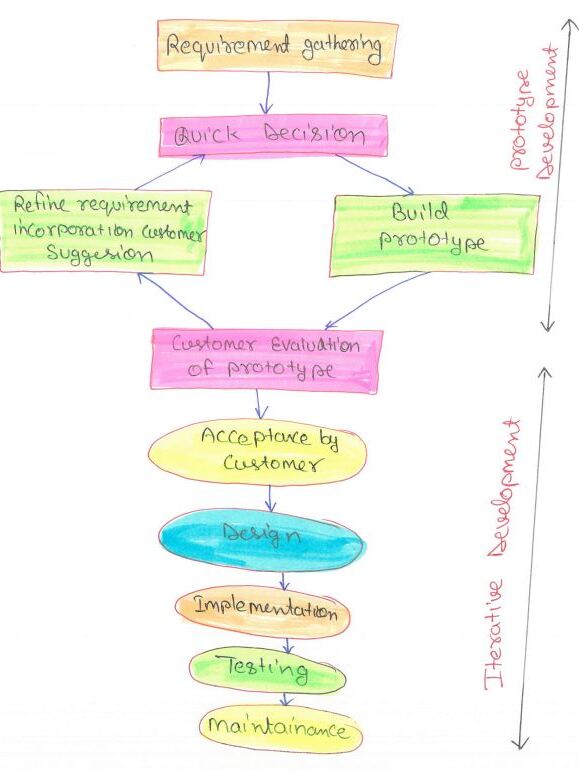 Requirement gathering
Quick Decision
Refine requirement
incorporation customer
Suggesion
Build
prototype
Customer Evaluation
of prototype
Acceptance by
Customer
Design
Implementation
Testing
Maintainance
Prototype
Development
Iterative Development